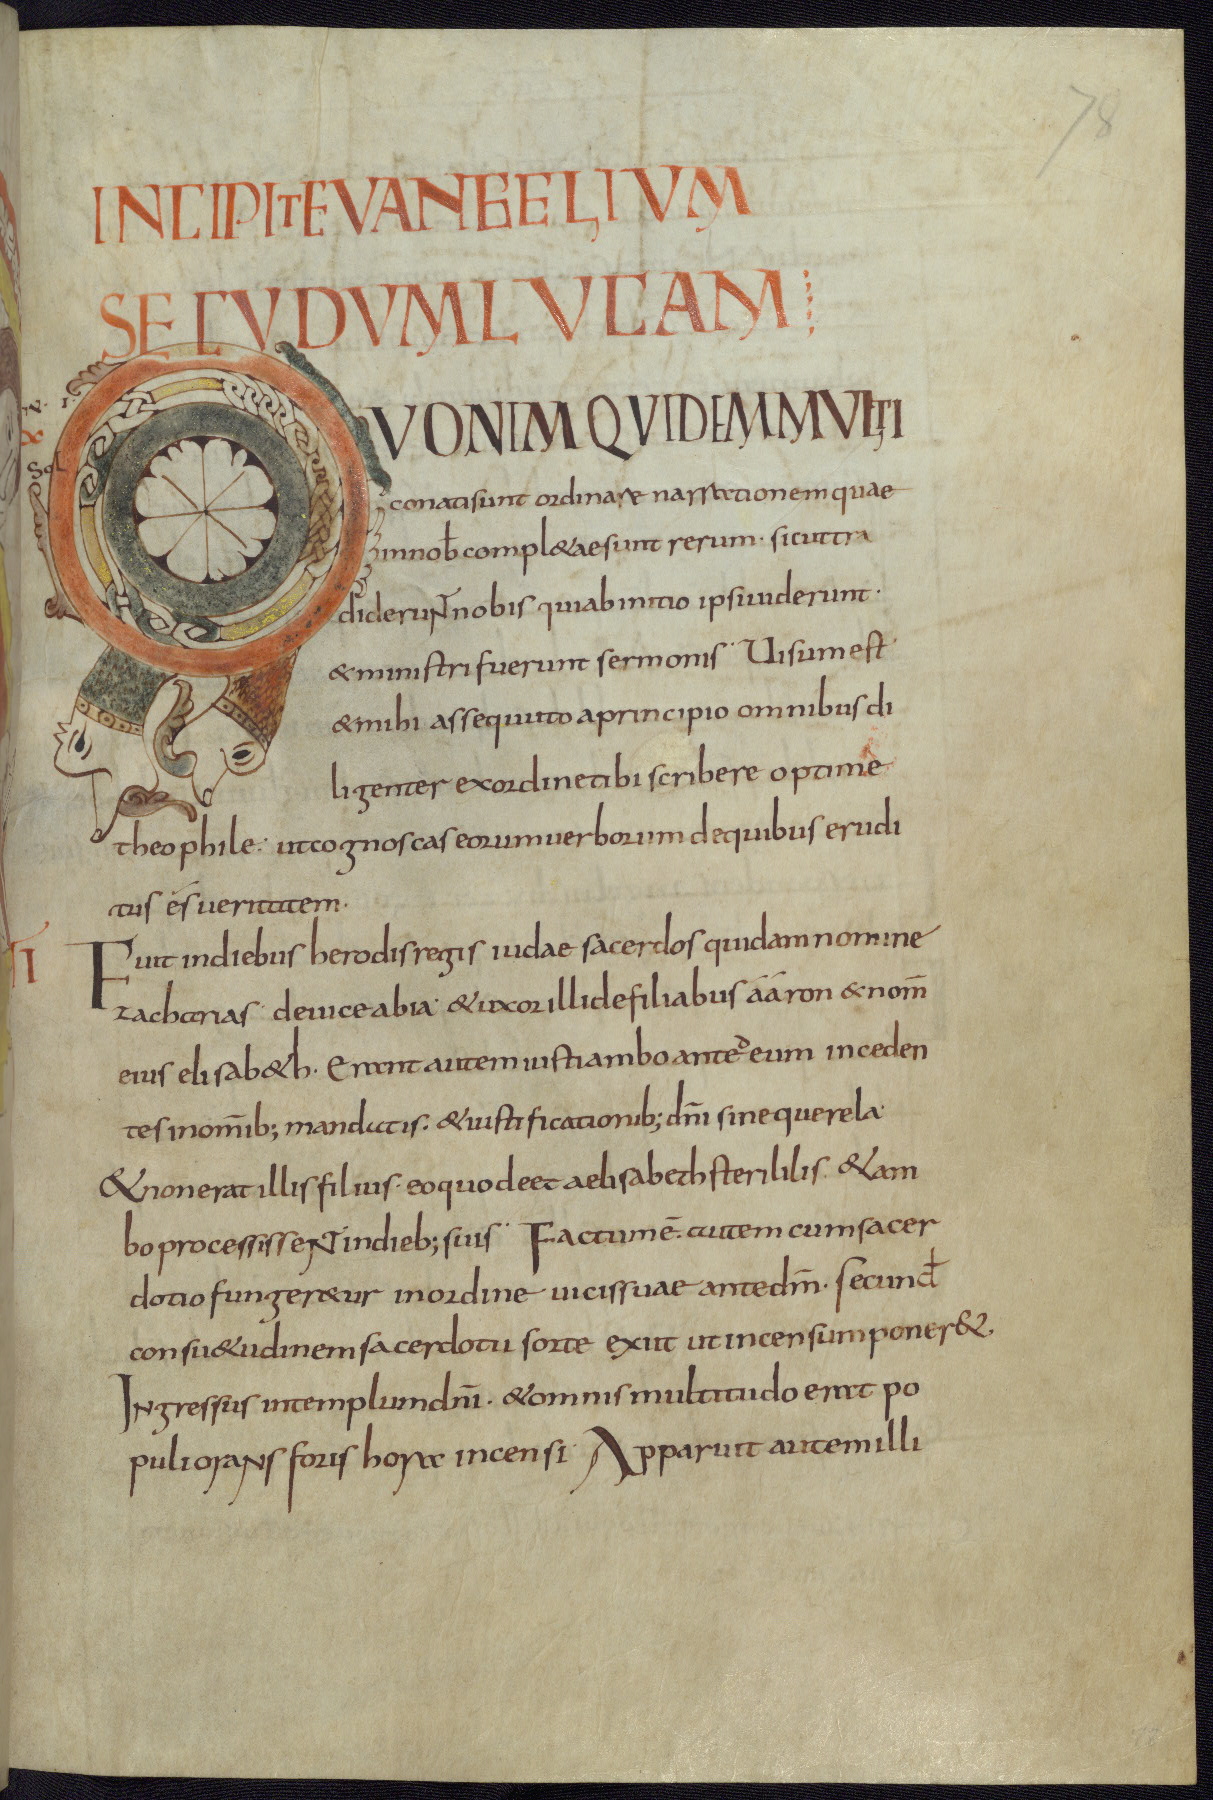 78
INCIPIT EVANGELIUM
SECUDUM LUCAM
QUONIM QUIDEM MULTI
conati sunt ordinare narrationem quae
innob̄ compl&ae sunt rerum · sicut tra
diderunt nobis qui ab initio ipsi uiderunt ·
& ministri fuerunt sermonis Uisum est
& mihi assequuto a principio omnibus di
ligenter ex ordine tibi scribere optime
theophile: ut cognoscas eorum uerborum de quibus erudi
tus es ueritatem ·
Fuit in diebus herodis regis iudae sacerdos quidam nomine
zacharias de uice abia & uxor illi de filiabus aaron & nom̄
eius elisab&h · Erant autem iusti ambo ante d̄eum inceden
tes in om̄ib; mandatis: & iustificationib; dn̄i sine querela
& non erat illis filius · eo quod e&t aelisabeth sterililis · & am
bo processissent in dieb; suis Factum ē · autem cum sacer
dotio funger&ur in ordine uicis suae ante dm̄ · secund̄
consu&udinem sacerdotii sorte exiit ut incensum poner& ·
Ingressus in templum dn̄i · & omnis multitudo erat po
puli orans foris hora incensi Apparuit autem illi